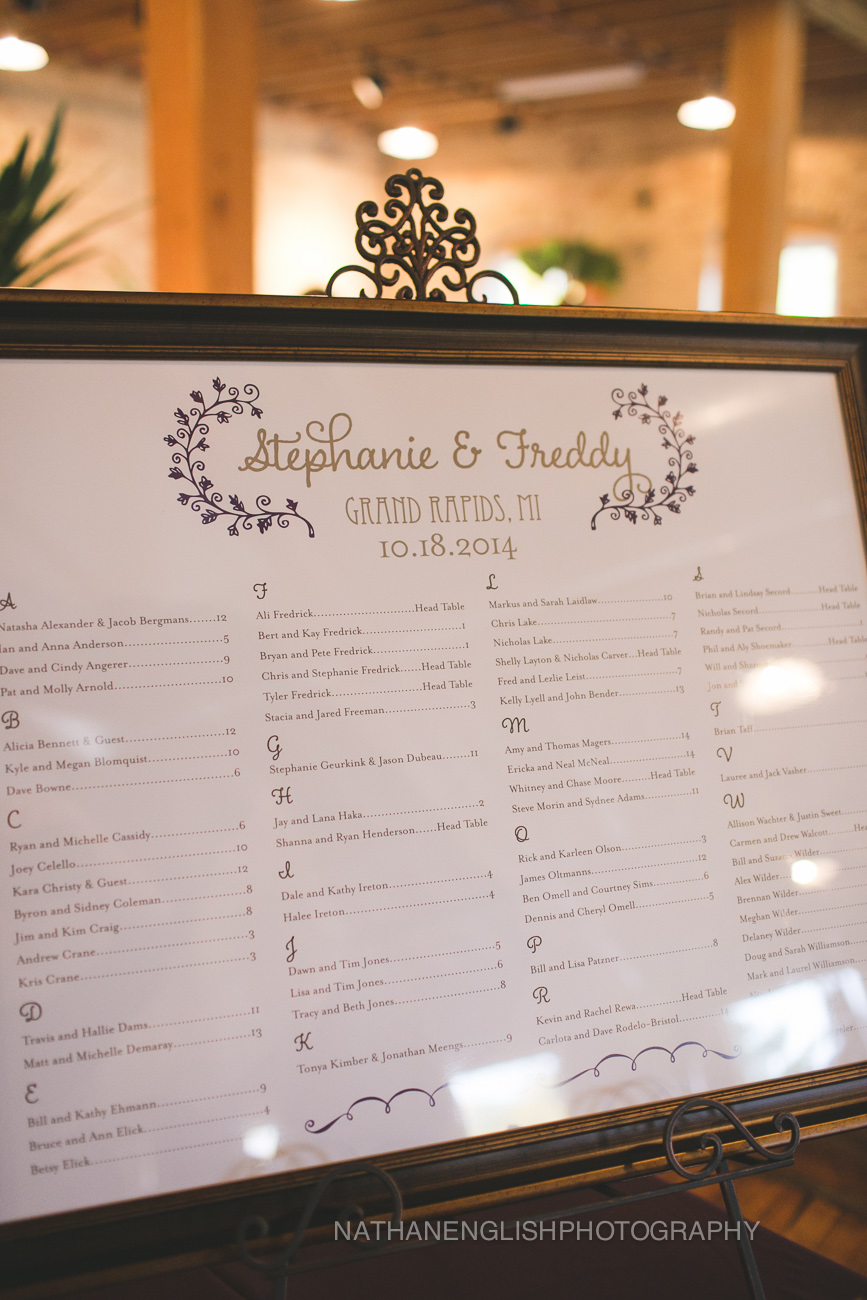 Stephanie & Freddy
GRAND RAPIDS, MI
10.18.2014
A
Natasha Alexander & Jacob Bergmans.......12
Ian and Anna Anderson..........5
Dave and Cindy Angerer..........9
Pat and Molly Arnold..........10
B
Alicia Bennett & Guest..........12
Kyle and Megan Blomquist..........10
Dave Bowne..........6
C
Ryan and Michelle Cassidy..........6
Joey Celello..........10
Kara Christy & Guest..........12
Byron and Sidney Coleman..........8
Jim and Kim Craig..........8
Andrew Crane..........3
Kris Crane..........3
D
Travis and Hallie Dams..........11
Matt and Michelle Demaray..........13
E
Bill and Kathy Ehmann..........9
Bruce and Ann Elick..........4
Betsy Elick..........
F
Ali Fredrick..........Head Table
Bert and Kay Fredrick..........1
Bryan and Pete Fredrick..........1
Chris and Stephanie Fredrick......Head Table
Tyler Fredrick..........Head Table
Stacia and Jared Freeman..........3
G
Stephanie Geurkink & Jason Dubeau.......11
H
Jay and Lana Haka..........2
Shanna and Ryan Henderson......Head Table
I
Dale and Kathy Ireton..........4
Halee Ireton..........4
J
Dawn and Tim Jones..........5
Lisa and Tim Jones..........6
Tracy and Beth Jones..........8
K
Tonya Kimber & Jonathan Meengs..........9
L
Markus and Sarah Laidlaw..........10
Chris Lake..........7
Nicholas Lake..........7
Shelly Layton & Nicholas Carver...Head Table
Fred and Lezlie Leist..........7
Kelly Lyell and John Bender..........13
M
Amy and Thomas Magers..........14
Ericka and Neal McNeal..........14
Whitney and Chase Moore.........Head Table
Steve Morin and Sydnee Adams..........11
O
Rick and Karleen Olson..........3
James Oltmanns..........12
Ben Omell and Courtney Sims..........6
Dennis and Cheryl Omell..........5
P
Bill and Lisa Patzner..........8
R
Kevin and Rachel Rewa..........Head Table
Carlota and Dave Rodelo-Bristol..........
S
Brian and Lindsay Secord.........Head Table
Nicholas Secord..........Head Table
Randy and Pat Secord..........1
Phil and Aly Shoemaker..........Head Table
Will and
Jon and
T
Brian Taff..........
V
Lauree and Jack Vasher..........
W
Allison Wachter & Justin Sweet..........
Carmen and Drew Walcott..........
Bill and Susan Wilder
Alex Wilder..........
Brennan Wilder..........
Meghan Wilder..........
Delaney Wilder..........
Doug and Sarah Williamson..........
Mark and Laurel Williamson..........
NATHANENGLISHPHOTOGRAPHY